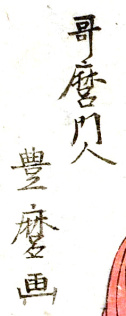 哥麿門人
豊麿画